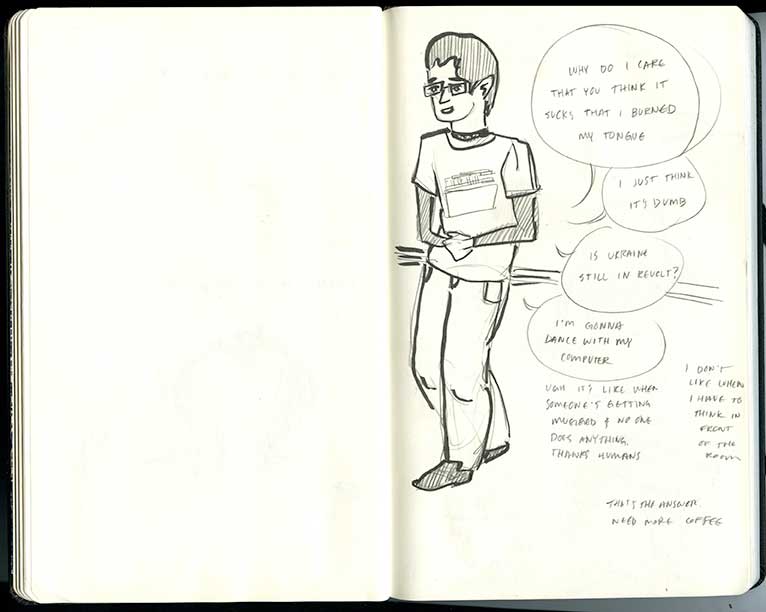 WHY DO I CARE
THAT YOU THINK IT
SUCKS THAT I BURNED
MY TONGUE
I JUST THINK
IT'S DUMB
IS UKRAINE
STILL IN REVOLT?
I'M GONNA
DANCE WITH MY
COMPUTER
UGH IT'S LIKE WHEN
SOMEONE'S GETTING
MUGGED & NO ONE
DOES ANYTHING.
THANKS HUMANS
I DON'T
LIKE WHEN
I HAVE TO
THINK IN
FRONT
OF THE
ROOM
THAT'S THE ANSWER.
NEED MORE COFFEE